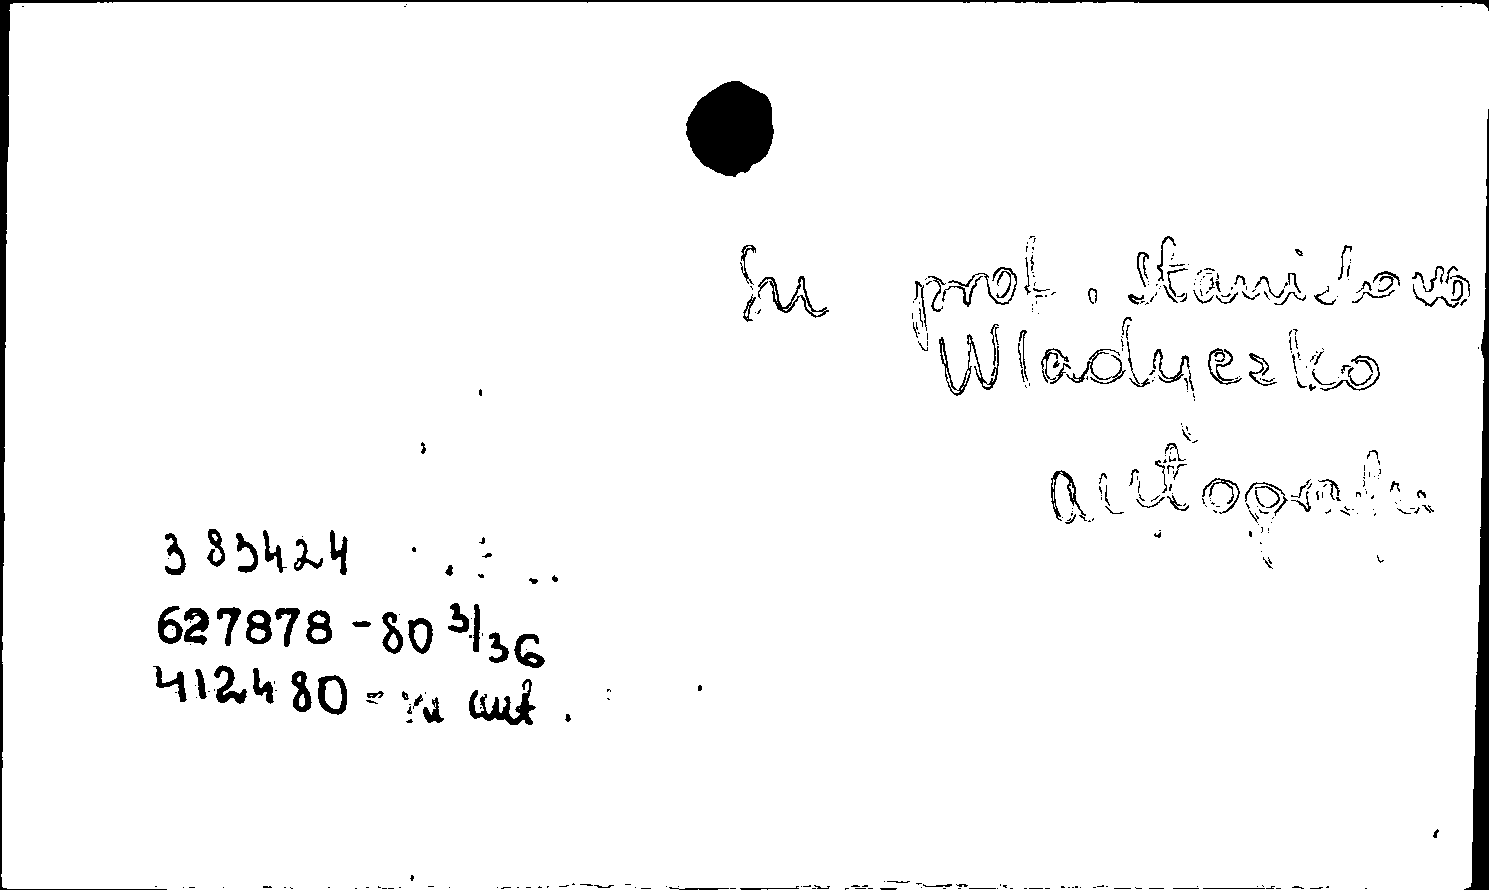 Su prof. Stanislovo
Wladyczko
autografu
383424
627878 - 80 3/36
412480 - su aut.